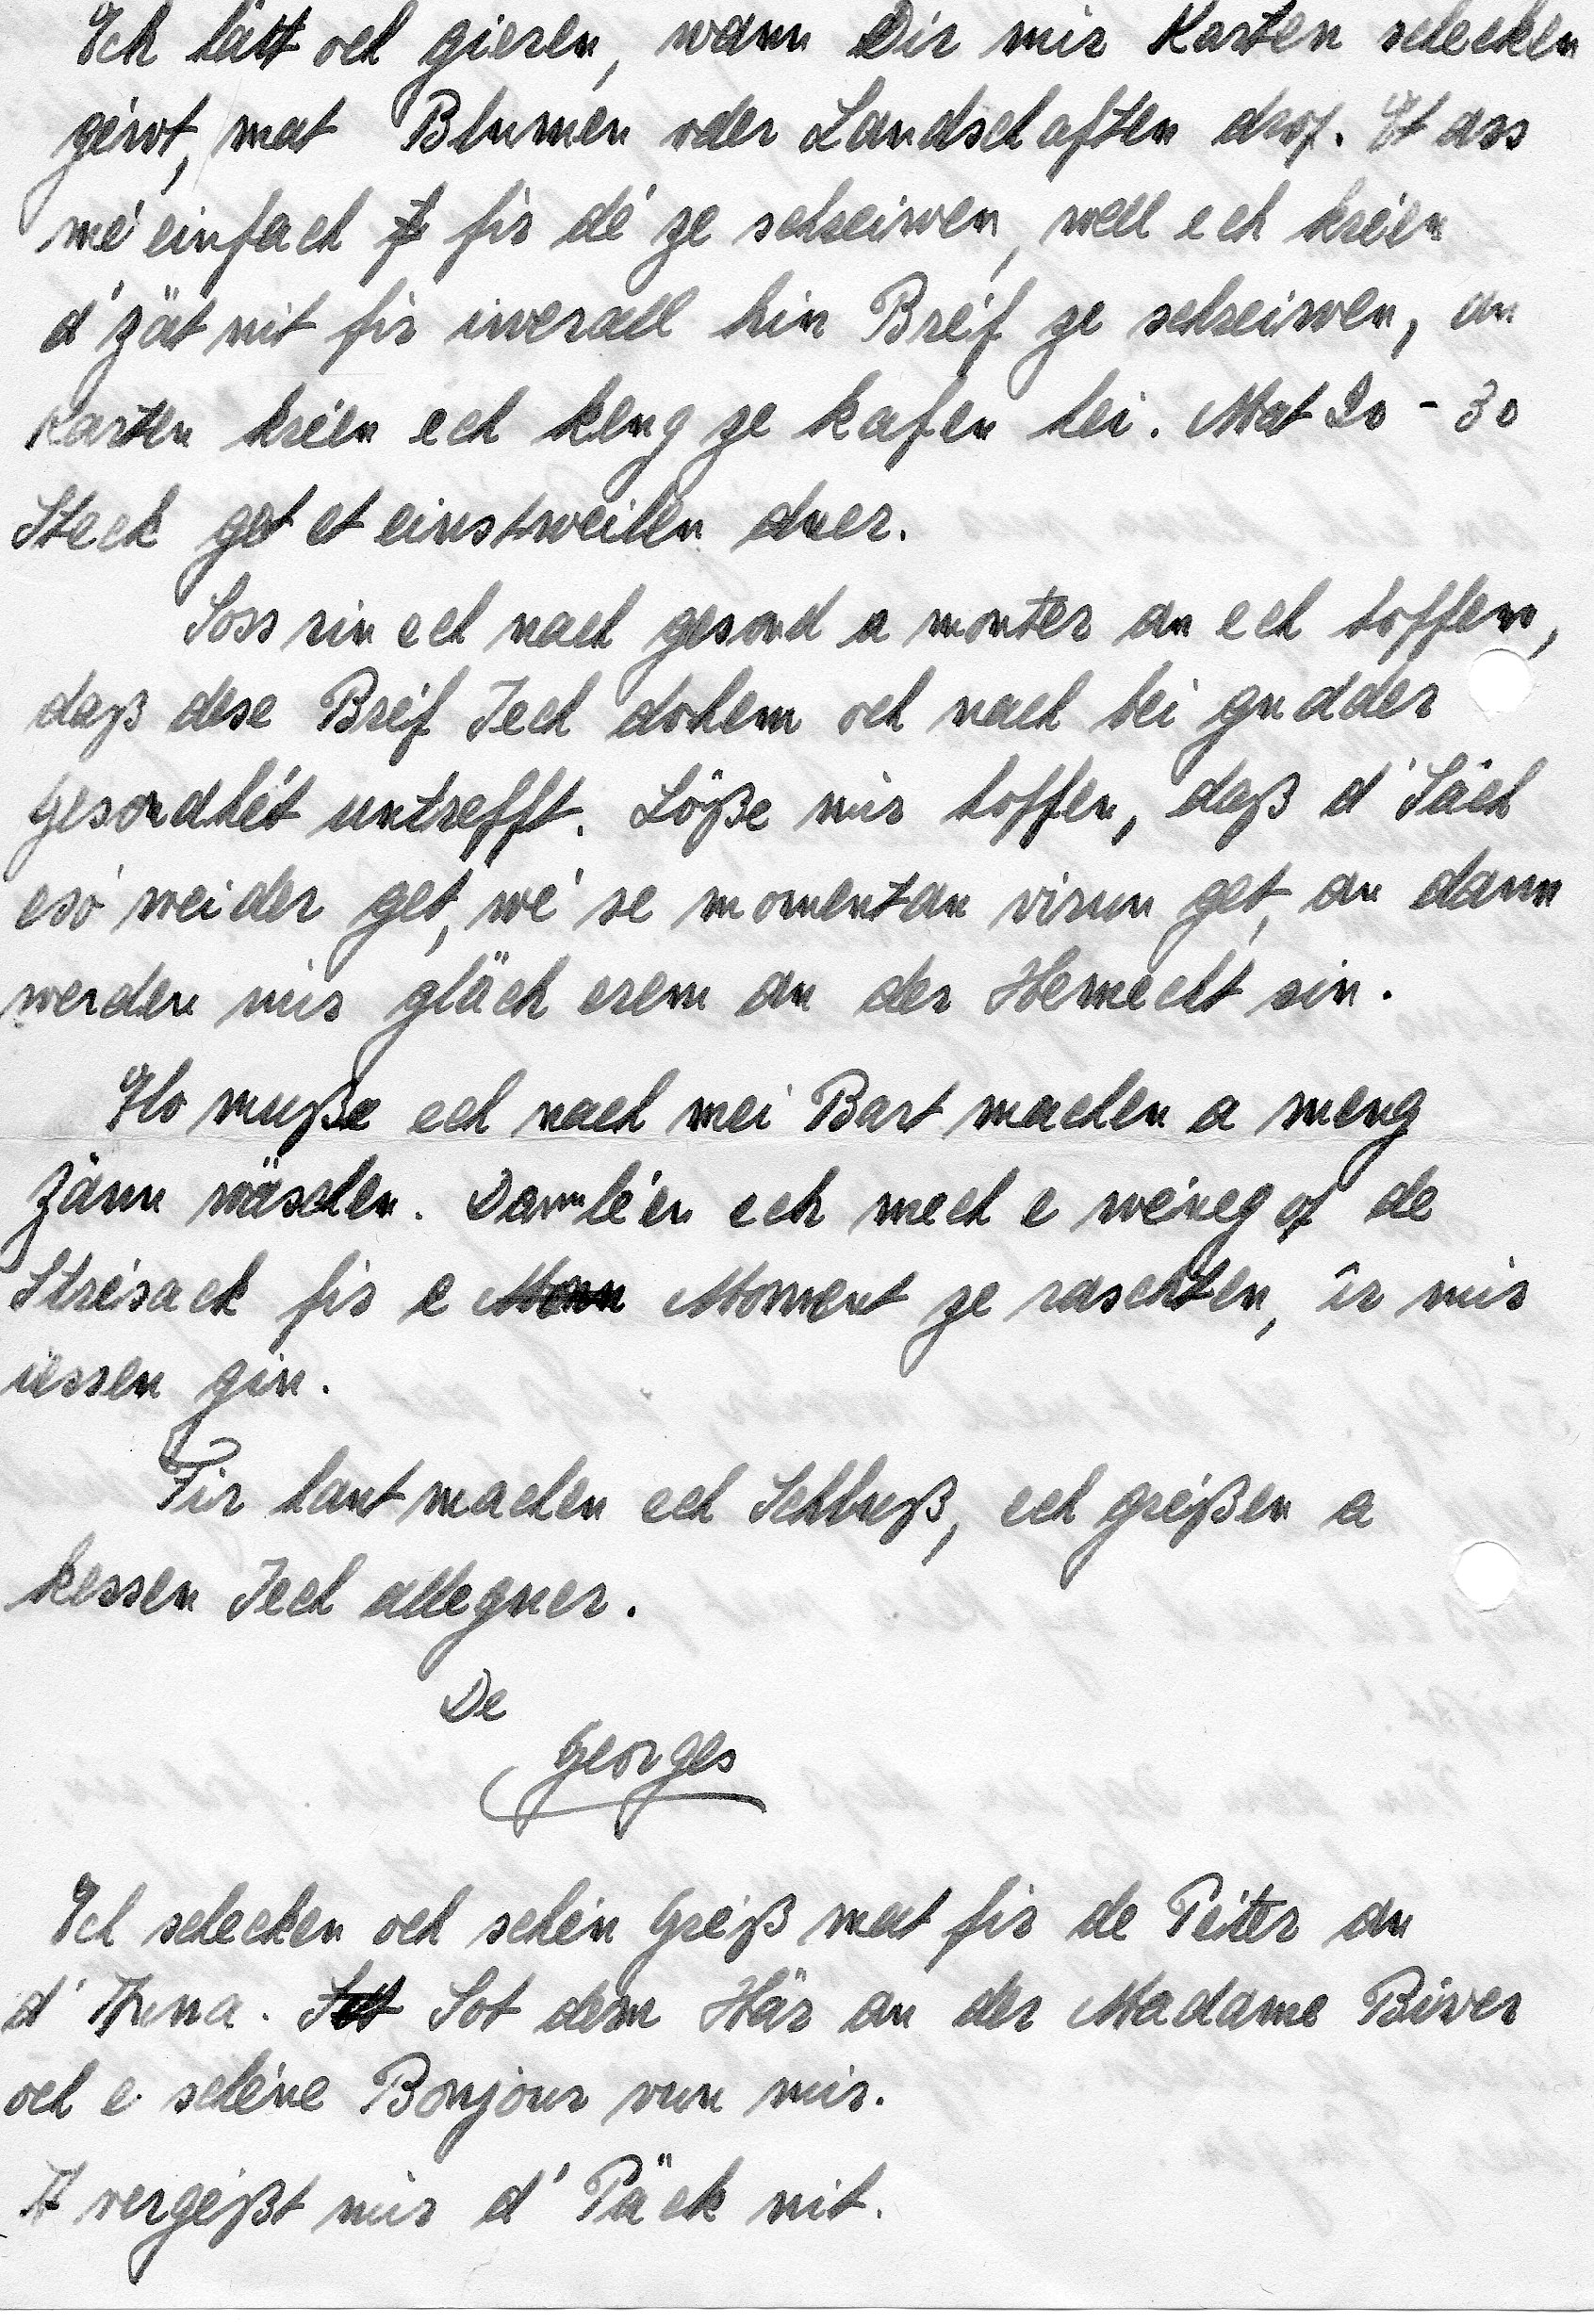 Ech hätt och gieren, wann Dir mir Karten schecken
géivt, mat Blumen oder Landschaften drop. Et ass
mé einfach fir dé ze schreiwen, well ech kréien
d'Zät nit fir iwerall hin Bréif ze schreiwen, an
Karten kréien ech keng ze kafen hei. Mat 20 - 30
Steck get et einstweilen duer.
Soss sin ech nach gesond a monter an ech hoffen,
daß dese Bréif Iech dohem och nach bei gudder
Gesondhét untrefft. Löße mir hoffen, daß d'Säch
esó weider get, wé se momentan virun get, an dann
werden mir gläch erem an der Hemecht sin.
Elo muße ech nach mei Bart machen a meng
Zänn wäschen. Dann léen ech mech e wéineg op de
Strésack fir e Moment ze raschten, ir mir
iessen gin.
Fir haut machen ech Schluß, ech gréißen a
kessen Iech alleguer.
De
Georges
Ech schecken och schéin Gréiß mat fir de Péiter an
d' Sot dem Här an der Madame Biver
och e schéine Bonjour vun mir.
vergéßt mir d'Päck nit.